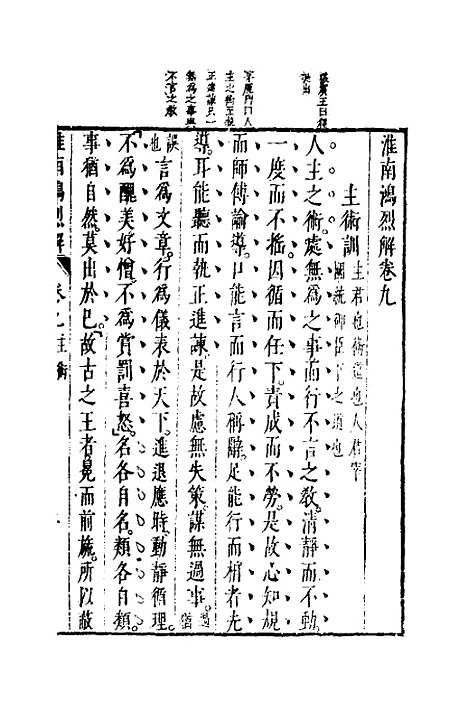 淮南鴻烈解卷九
主術訓
主君也術道也人君宰
國統御臣下之道也
人主之術處無為之事而行不言之敎清靜而不動
一度而不搖因循而任下責成而不勞是故心知規
而師傅諭導口能言而行人稱辭足能行而相者先
導耳能聽而執正進諫是故慮無失策謀無過事
過猶
誤也
言為文章行為儀表於天下進退應時動靜循理
不為醜美好憎不為賞罰喜怒名各自名類各自類
事猶自然莫出於已故古之王者冕而前旒所以蔽
淮南鴻烈解